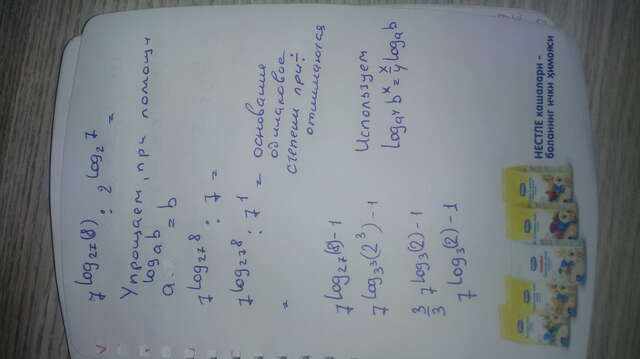 7^log₂₇(8) : 2^log₂7 =
Упрощаем, при помощи
a^logₐb = b
7^log₂₇8 : 7 =
7^log₂₇8 : 7¹ = основания
одинаковое
степени при ÷
отнимаются
=
7^log₂₇(8)-1
7^log₃³(2³)-1
Используем
logₐʸ bˣ = x/y logₐb
3/3 7^log₃(2)-1
7^log₃(2)-1
НЕСТЛЕ кашалари -
боланинг ички ҳимояси